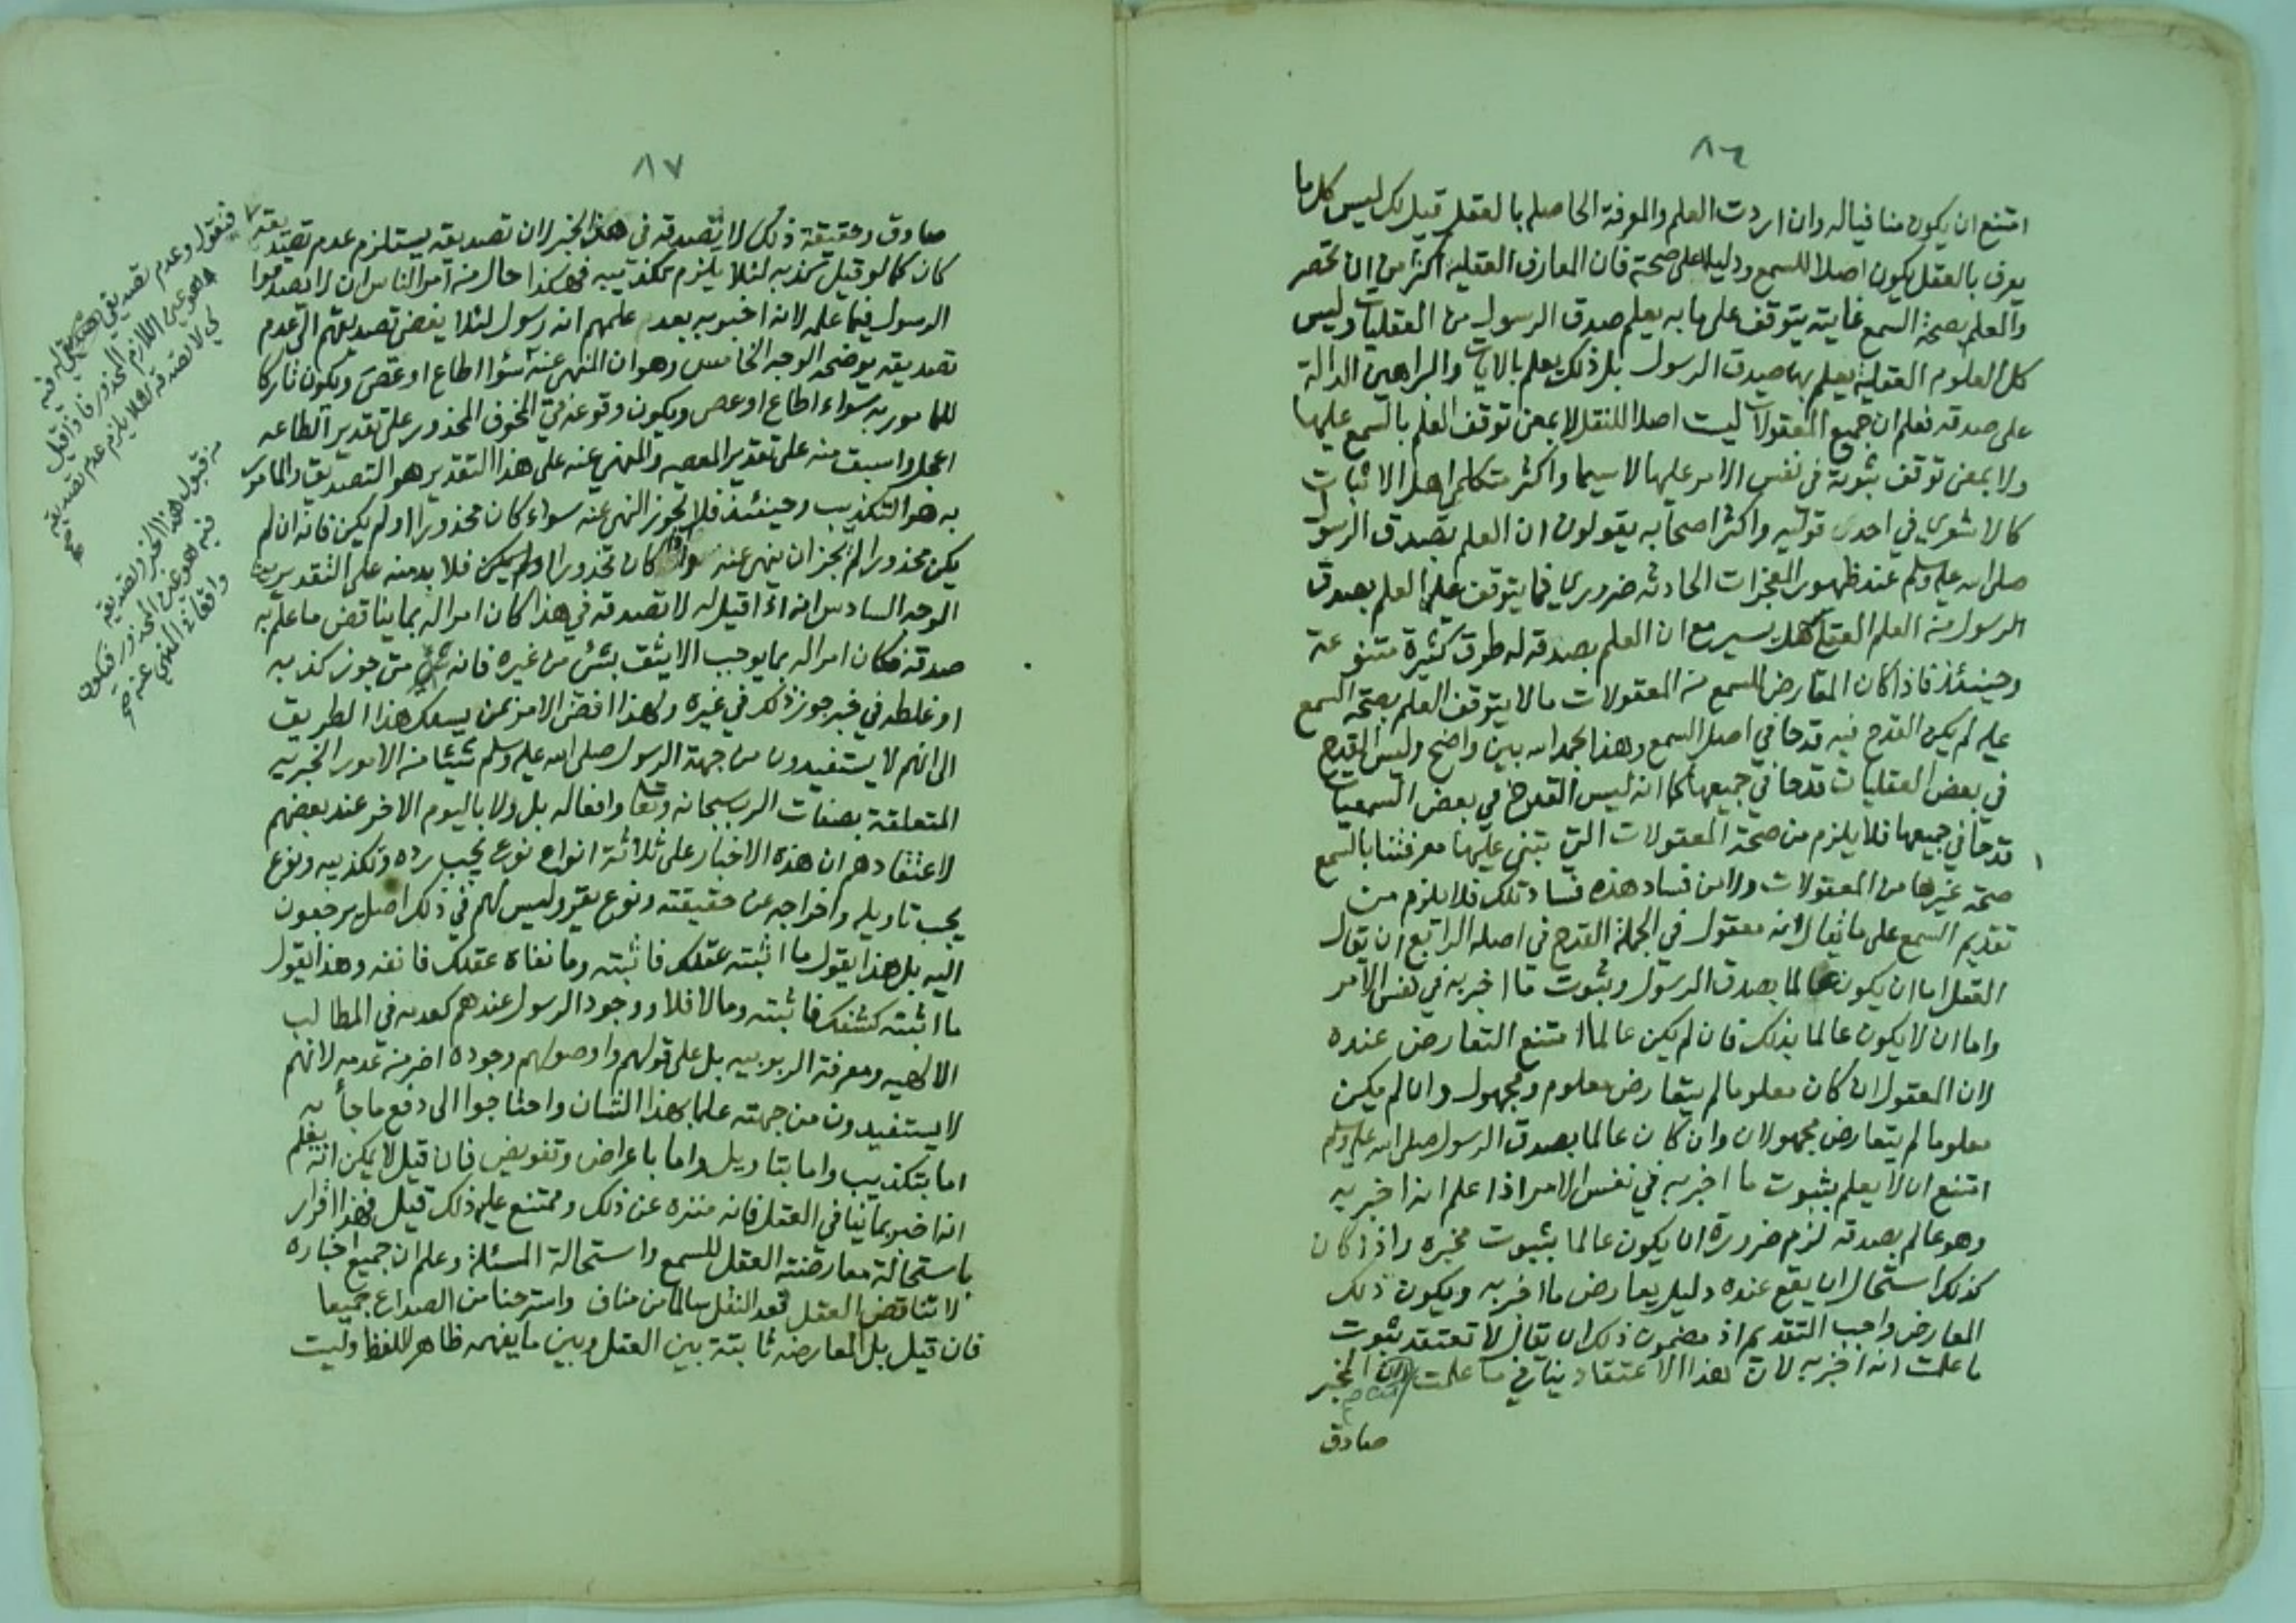 ٨٦
امتنع ان يكون منافيا له وان اردت العلم والمعرفة الحاصلة بالعقل قيل لك ليس كل ما
يعرف بالعقل يكون اصلا للسمع ودليلا على صحته فان المعارف العقلية اكثر من ان تحصر
والعلم بصحة السمع غايته يتوقف على ما به يعلم صدق الرسول من العقليات وليس
كل العلوم العقلية يعلم بها صدق الرسول بل ذلك يعلم بالايات والبراهين الدالة
على صدقه فعلم ان جميع المعقولات ليست اصلا للنقل لا بمعنى توقف العلم بالسمع عليها
ولا بمعنى توقف ثبوته في نفس الامر عليها لا سيما واكثر متكلمي اهل الاثبات
كالاشعري في احدى قوليه واكثر اصحابه يقولون ان العلم بصدق الرسول
صلى الله عليه وسلم عند ظهور المعجزات الحادثه ضروري فما يتوقف عليه العلم بصدق
الرسول من العلم العقلي سهل يسير مع ان العلم بصدقه له طرق كثيرة متنوعة
وحينئذ فاذا كان المعارض للسمع من المعقولات ما لا يتوقف العلم بصحة السمع
عليه لم يكن القدح فيه قدحا في اصل السمع وهذا بحمد الله بين واضح وليس القدح
في بعض العقليات قدحا في جميعها كما انه ليس القدح في بعض السمعيات
قدحا في جميعها فلا يلزم من صحة المعقولات التي تبنى عليها معرفتنا بالسمع
صحة غيرها من المعقولات ولا من فساد هذه فساد تلك فلا يلزم من
تقديم السمع على ما يقال انه معقول في الجملة القدح في اصله الرابع ان يقال
العقل اما ان يكون عالما بصدق الرسول وثبوت ما اخبر به في نفس الامر
واما ان لا يكون عالما بذلك فان لم يكن عالما امتنع التعارض عنده
لان المعقول ان كان معلوما لم يتعارض معلوم ومجهول وان لم يكن
معلوما لم يتعارض مجهولان وان كان عالما بصدق الرسول صلى الله عليه وسلم
امتنع ان لا يعلم بثبوت ما اخبر به في نفس الامر اذا علم انه اخبر به
وهو عالم بصدقه لزم ضرورة ان يكون عالما بثبوت مخبره واذا كان
كذلك استحال ان يقع عنده دليل يعارض ما اخبر به ويكون ذلك
المعارض واجب التقديم اذ مضمون ذلك ان يقال لا تعتقد ثبوت
ما علمت انه اخبر به لان هذا الاعتقاد ينافي ما علمت ان المخبر
صادق
٨٧
صادق وحقيقة ذلك لا تصدقه في هذا الخبر لان تصديقه يستلزم عدم تصديقه
كان كما لو قيل كذبه لئلا يلزم تكذيبه فهكذا حال من امر الناس ان لا يصدقوا
الرسول فيما علم لانه اخبر به بعد علمهم انه رسول لئلا يفضي تصديقهم الى عدم
تصديقه يوضحه الوجه الخامس وهو ان المنهي عنه سواء اطاع او عصى ويكون تاركا
للمامور به سواء اطاع او عصى ويكون وقوعه في المخوف المحذور على تقدير الطاعه
اعجل واسبق منه على تقدير المعصيه والمنهي عنه على هذا التقدير هو التصديق والمامور
به هو التكذيب وحينئذ فلا يجوز النهي عنه سواء كان محذورا او لم يكن فانه ان لم
يكن محذورا لم يجز ان ينهى عنه وان كان محذورا او لم يكن فلا بد منه على التقديرين
الوجه السادس انه اذا قيل له لا تصدقه في هذا كان امرا له بما يناقض ما علم به
صدقه فكان امرا له بما يوجب الا يثق بشئ من غيره فانه متى جوز كذبه
او غلطه في خبر جوز ذلك في غيره ولهذا افضى الامر بمن يسلك هذا الطريق
الى انهم لا يستفيدون من جهة الرسول صلى الله عليه وسلم شيئا من الامور الخبرية
المتعلقة بصفات الرب سبحانه وتعا وافعاله بل ولا باليوم الاخر عند بعضهم
لاعتقادهم ان هذه الاخبار على ثلاثة انواع نوع يجب رده وتكذيبه ونوع
يجب تاويله واخراجه عن حقيقته ونوع يقر وليس لهم في ذلك اصل يرجعون
اليه بل هذا يقول ما اثبته عقلك فاثبته وما نفاه عقلك فانفه وهذا يقول
ما اثبته كشفك فاثبته وما لا فلا ووجود الرسول عندهم كعدمه في المطالب
الالهيه ومعرفة الربوبيه بل على قولهم واصولهم وجوده اضر من عدمه لانهم
لا يستفيدون من جهته علما بهذا الشان واحتاجوا الى دفع ما جأ به
اما بتكذيب واما بتاويل واما باعراض وتفويض فان قيل لا يمكن انه يعلم
انه اخبر بما ينافي العقل فانه منزه عن ذلك وممتنع عليه ذلك قيل فهذا اقرار
باستحالة معارضته العقل للسمع واستحالة المسئلة وعلم ان جميع اخباره
لا تناقض العقل فعد النقل سالما من مناف واسترحنا من الصداع جميعا
فان قيل بل المعارضه ثابتة بين العقل وبين ما يفهمه ظاهر اللفظ وليست
فنقول وعدم تصديقه
هو عين اللازم المحذور فاذا قيل
لا تصدقه لئلا يلزم عدم تصديقه
من قبول هذا الخبر وتصديقه
فيه هو عين المحذور فيكون
واقعا في المنهي عنه صح